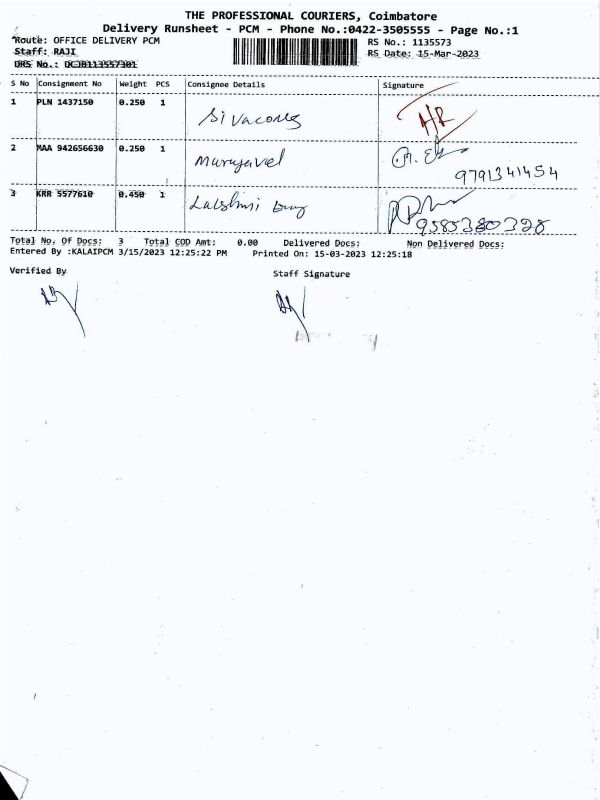 THE PROFESSIONAL COURIERS, Coimbatore
Delivery Runsheet - PCM - Phone No.:0422-3505555 - Page No.:1
Route: OFFICE DELIVERY PCM RS No.: 1135573
Staff: RAJI RS Date: 15-Mar-2023
DRS No.: DCJB113557301
S No Consignment No Weight PCS Consignee Details Signature
1 PLN 1437150 0.250 1
2 MAA 942656630 0.250 1 Murugavel
9791341454
3 KRR 5577610 0.450 1 Lakshmi
9585380328
Total No. Of Docs: 3 Total COD Amt: 0.00 Delivered Docs: Non Delivered Docs:
Entered By :KALAIPCM 3/15/2023 12:25:22 PM Printed On: 15-03-2023 12:25:18
Verified By Staff Signature